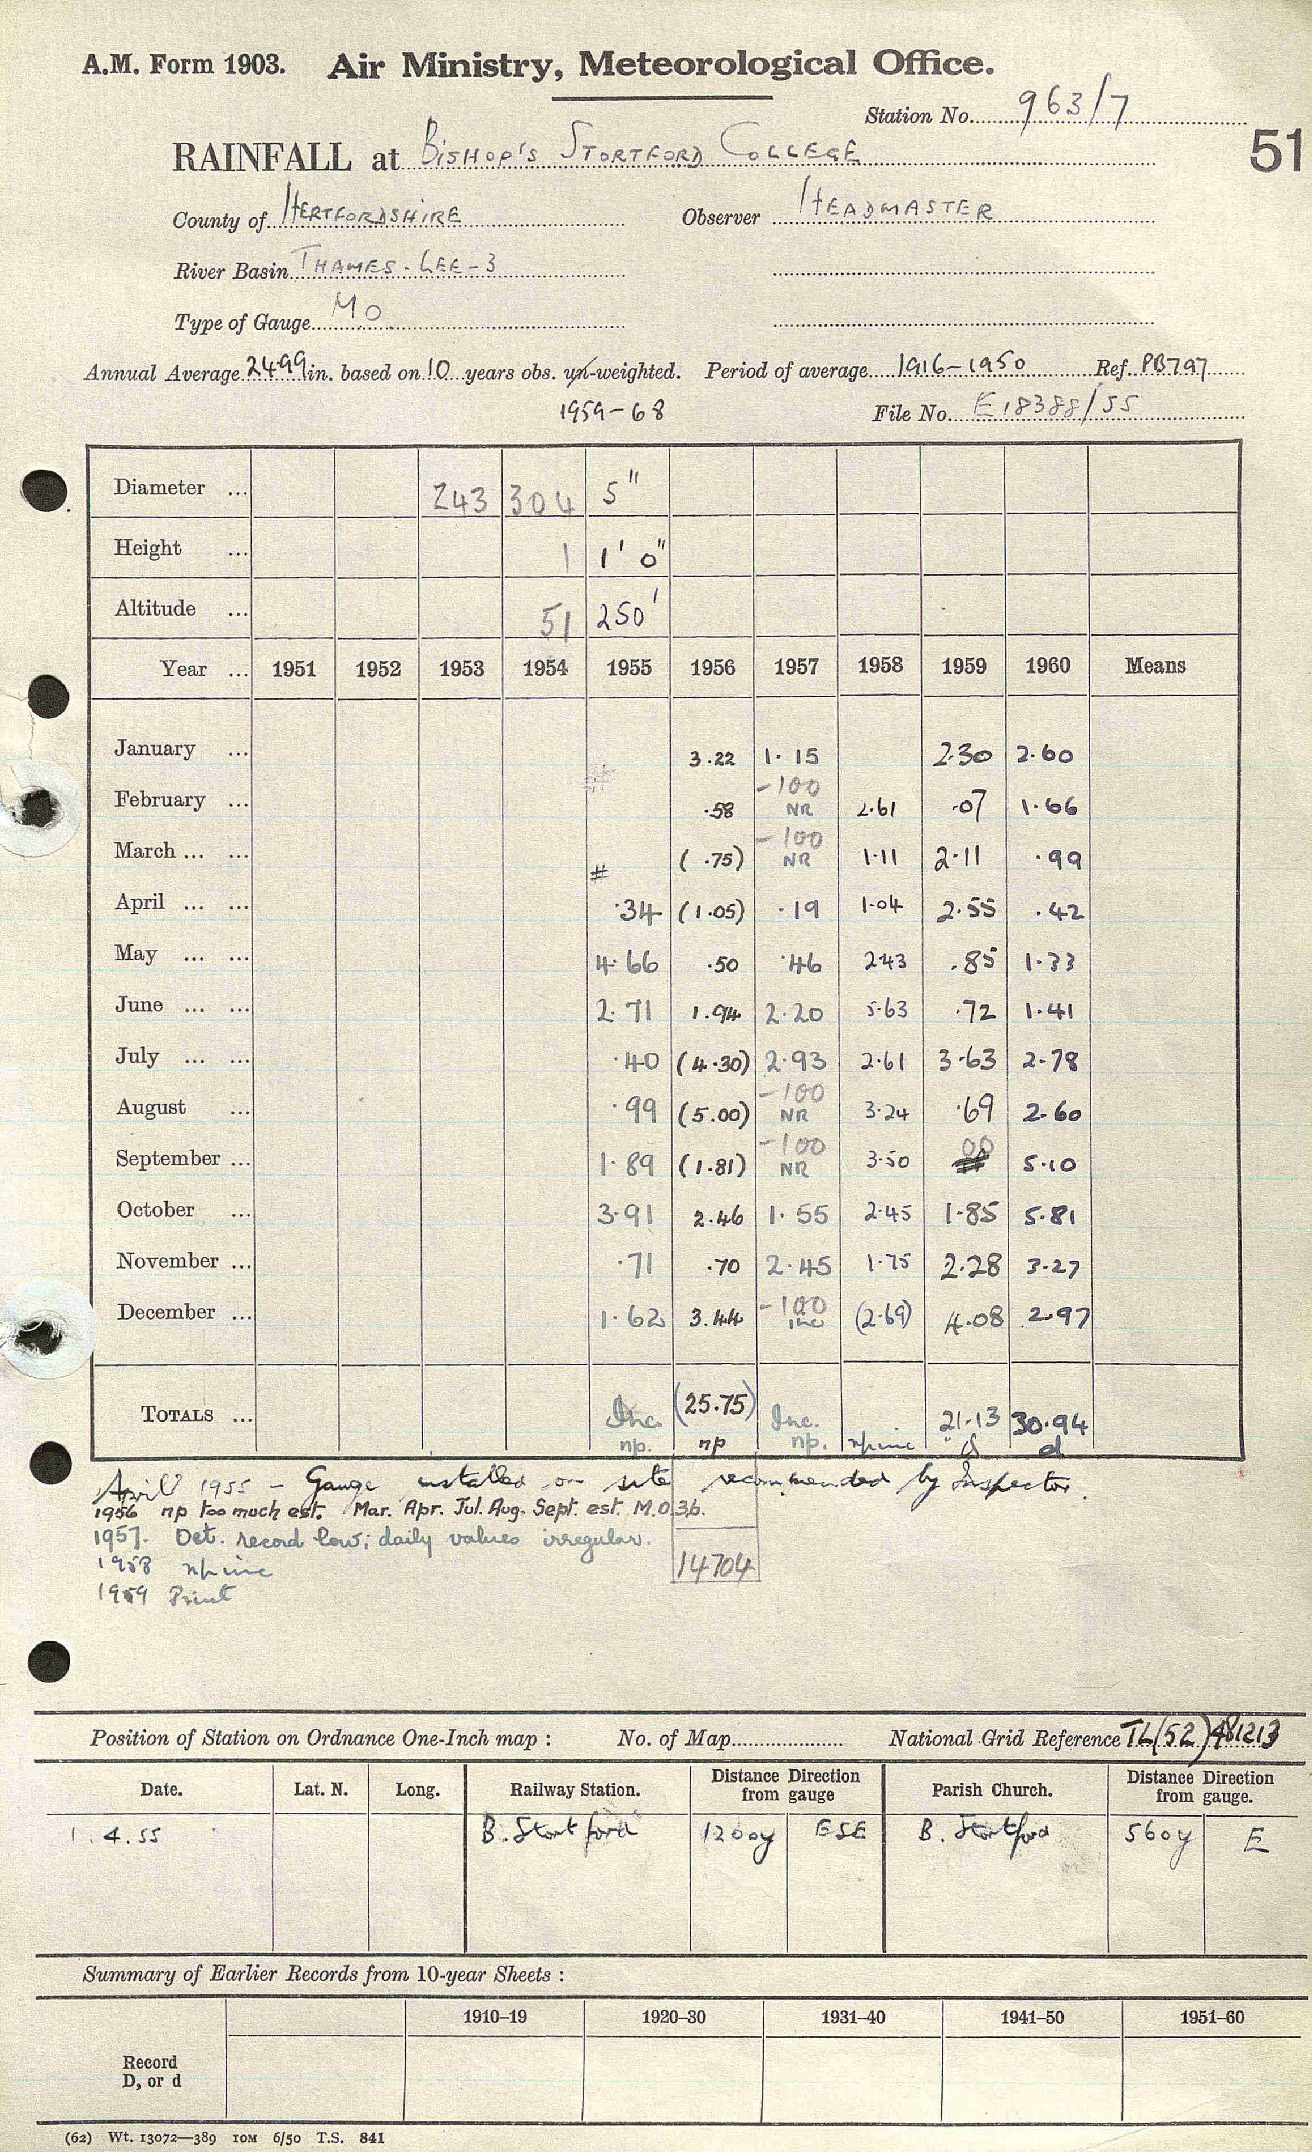 A.M. Form 1903. Air Ministry, Meteorological Office.
Station No. 963/7
51
RAINFALL at BISHOP'S STORTFORD COLLEGE
County of HERTFORDSHIRE Observer HEADMASTER
River Basin THAMES-LEE-3
Type of Gauge MO
Annual Average 24.99 in. based on 10 years obs. un-weighted. Period of average 1916-1950 Ref. PB797
1959-68 File No. E18388/55
Diameter ... 243 304 5"
Height ... 1 1' 0"
Altitude ... 51 250'
Year ... 1951 1952 1953 1954 1955 1956 1957 1958 1959 1960 Means
January ... 3.22 1.15 2.30 2.60
-100
February ... # .58 NR 2.61 .07 1.66
-100
March ... ... # (.75) NR 1.11 2.11 .99
April ... ... .34 (1.05) .19 1.04 2.55 .42
May ... ... 4.66 .50 .46 2.43 .85 1.33
June ... ... 2.71 1.94 2.20 5.63 .72 1.41
July ... ... .40 (4.30) 2.93 2.61 3.63 2.78
-100
August ... .99 (5.00) NR 3.24 .69 2.60
-100 00
September ... 1.89 (1.81) NR 3.50 5.10
October ... 3.91 2.46 1.55 2.45 1.85 5.81
November ... .71 .70 2.45 1.75 2.28 3.27
-100
December ... 1.62 3.44 inc (2.69) 4.08 2.97
TOTALS ... Inc. (25.75) Inc. 21.13 30.94
np. np np. np inc d d
April 1955 - Gauge installed on site recommended by Inspector.
1956 np too much est. Mar. Apr. Jul. Aug. Sept. est. M.O.3b.
1957. Oct. record low; daily values irregular.
1958 np inc 14704
1959 Print
Position of Station on Ordnance One-Inch map : No. of Map National Grid Reference TL(52)481213
Date. Lat. N. Long. Railway Station. Distance Direction from gauge Parish Church. Distance Direction from gauge.
1.4.55 B. Stortford 1200y ESE B. Stortford 560y E
Summary of Earlier Records from 10-year Sheets :
1910-19 1920-30 1931-40 1941-50 1951-60
Record
D, or d
(62) Wt. 13072—389 IOM 6/50 T.S. 841